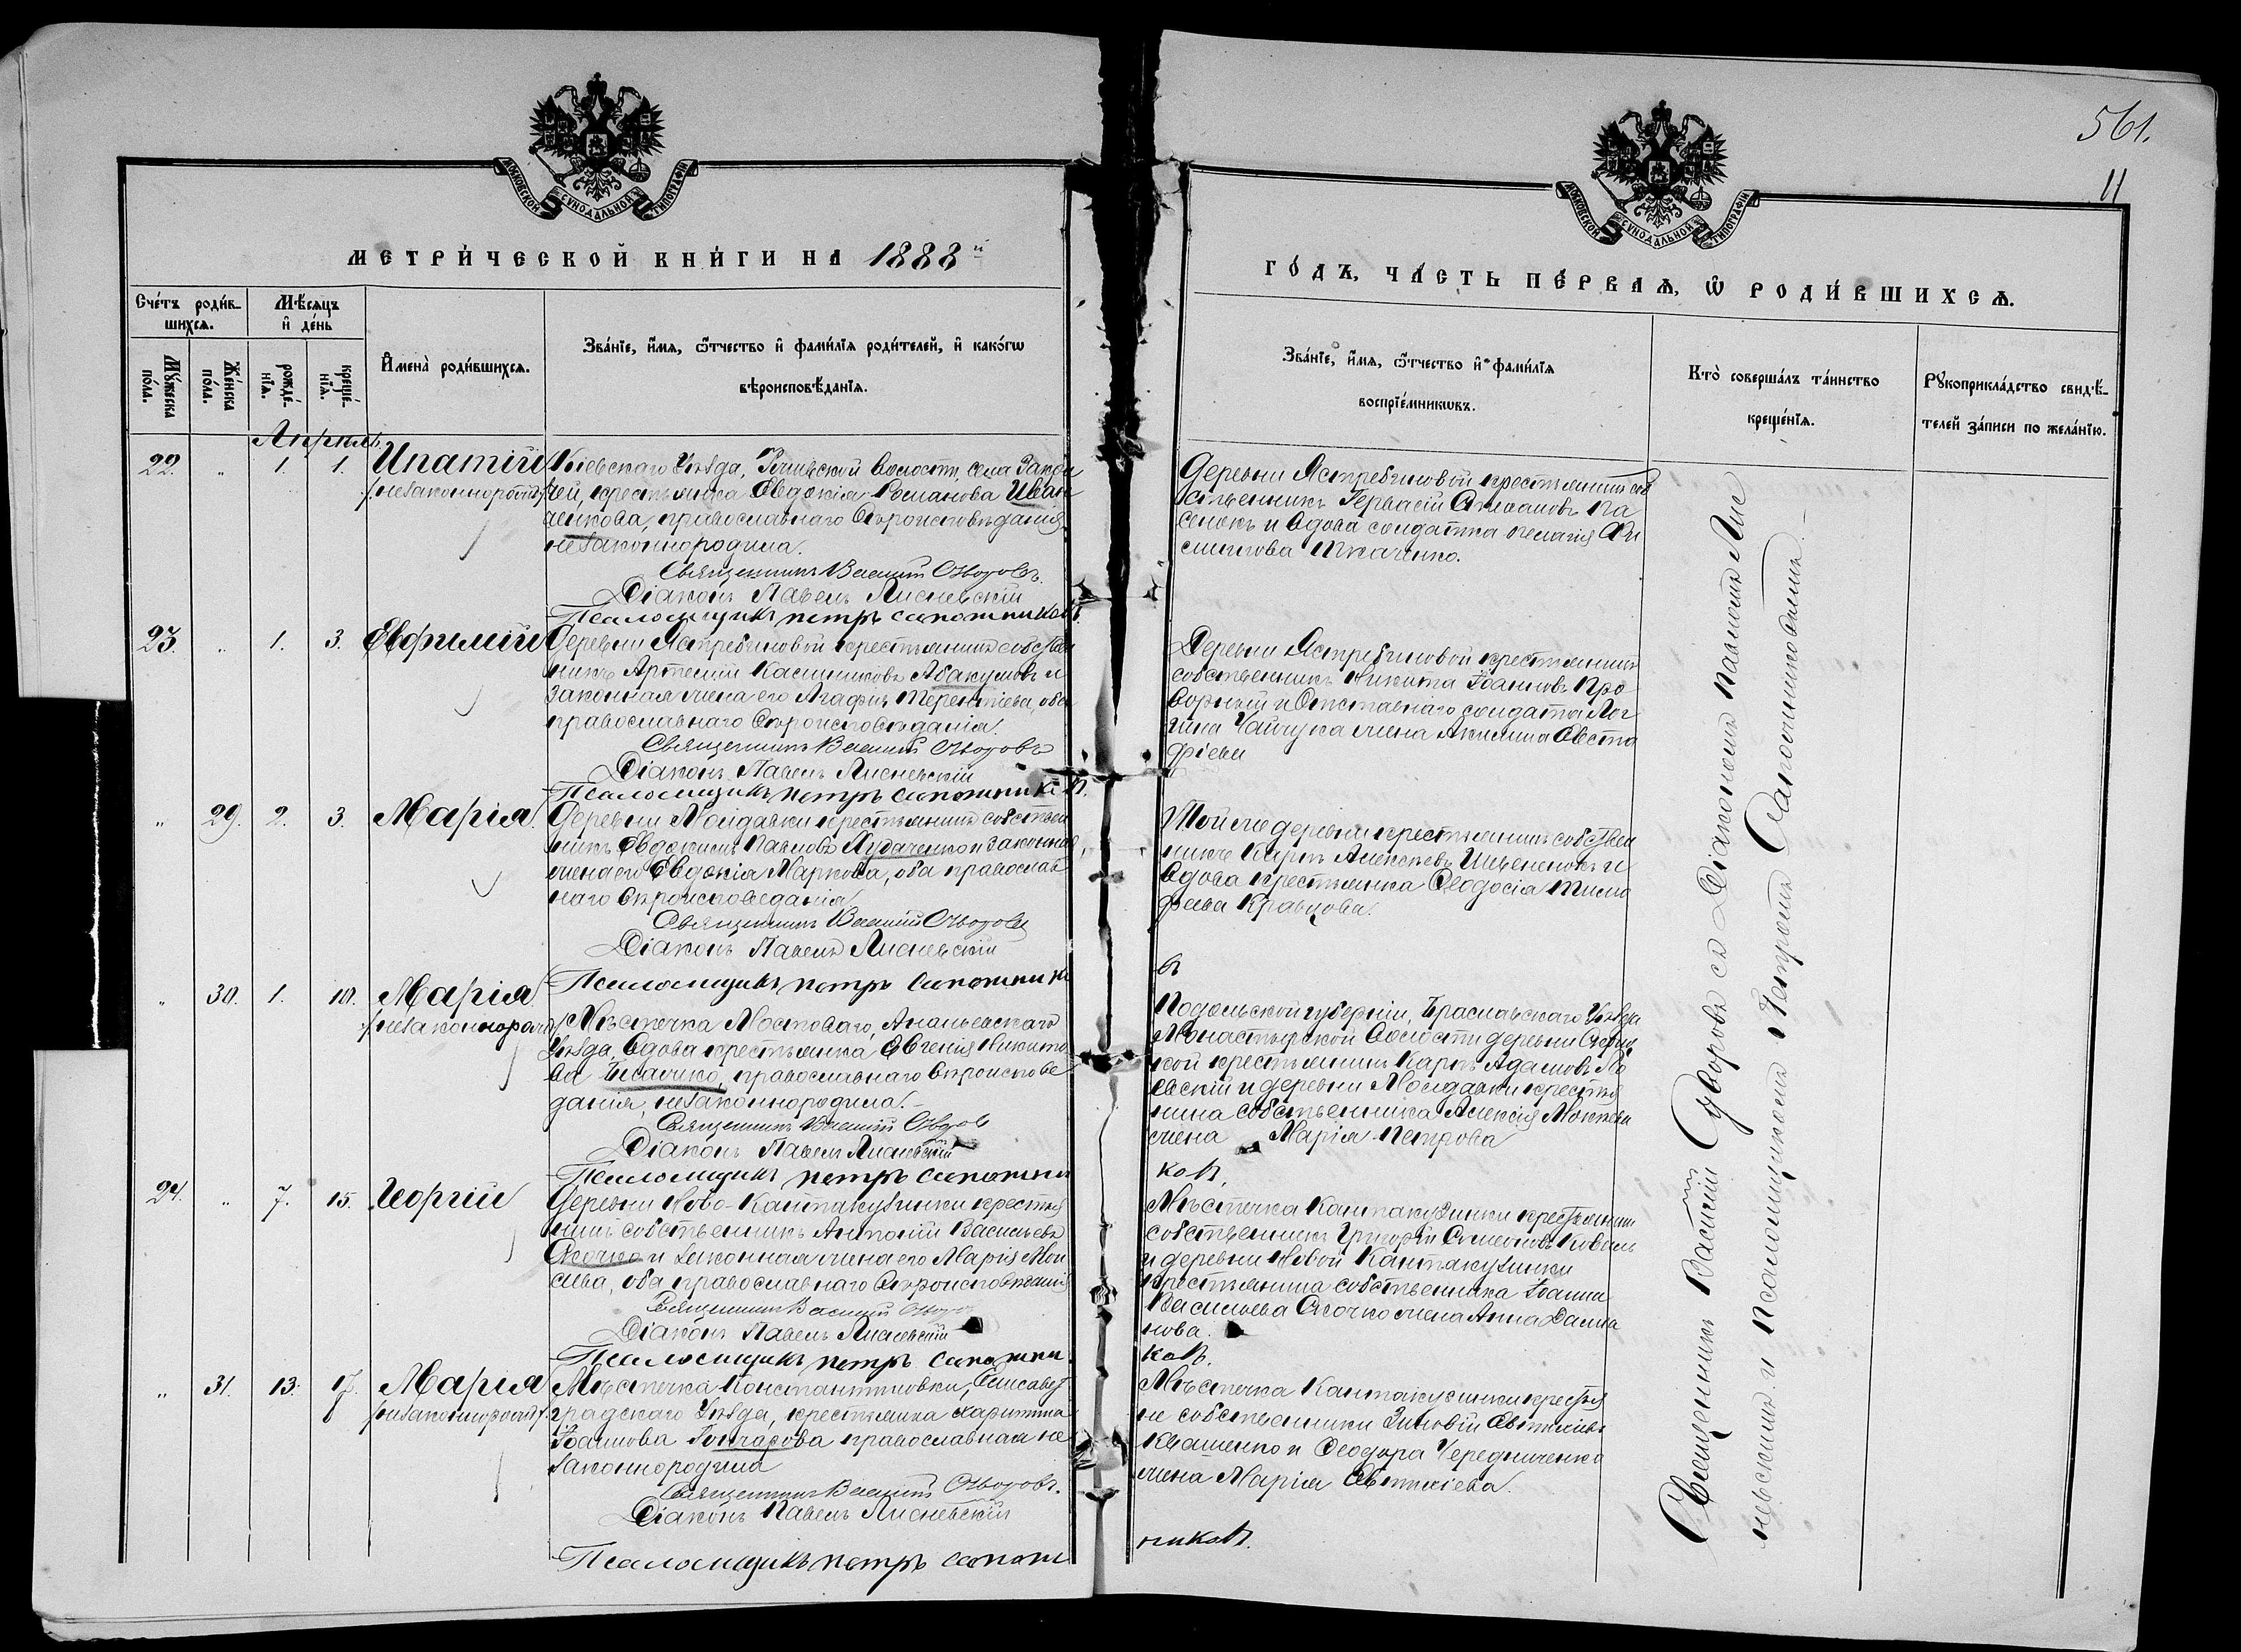 561.
11
МОСКОВСКОЙ СѴНОДАЛЬНОЙ ТИПОГРАФІИ
МОСКОВСКОЙ СѴНОДАЛЬНОЙ ТИПОГРАФІИ
МЕТРИ́ЧЕСКОЙ КНИ́ГИ НА 1888й
ГО́ДЪ, ЧА́СТЬ ПЕ́РВАѦ, Ѡ҆ РОДИ́ВШИХСѦ.
Сче́тъ роди́в-
шихсѧ.
Мѣ́сѧцъ
и҆ де́нь
Мꙋ́жеска
по́ла.
Же́нска
по́ла.
рожде́-
нїѧ.
креще́-
нїѧ.
И҆мена̀ роди́вшихсѧ.
Зва́нїе, и҆́мѧ, ѻ҆́тчество и҆ фами́лїѧ роди́телей, и҆ како́гѡ
вѣроисповѣ́данїѧ.
Зва́нїе, и҆́мѧ, ѻ҆́тчество и҆ фами́лїѧ
воспрїе́мникѡвъ.
Кто̀ соверша́лъ та́инство
креще́нїѧ.
Рꙋкоприкла́дство свидѣ́-
телей за́писи по жела́нїю.
Апрель
22. „ 1. 1. Ипатій
/незаконнорож/
Кіевскаго Уѣзда, волости, села
крестьянка Евдокія Романова
православнаго вѣроисповѣданія
незаконнородила.
Священникъ Василій Суворовъ.
Діаконъ Павелъ Лисневскій
Псаломщикъ петръ сапожниковъ.
Деревни Ястребиновой крестьянинъ соб
ственникъ Гервасій Па
сенокъ и вдова солдатка пелагія
Ткаченко.
23. „ 1. 3. Евфимій
Деревни Ястребиновой крестьянинъ собствен
никъ Артемій Абакумовъ и
законная жена его Агафія Терентіева, оба
православнаго вѣроисповѣданія.
Священникъ Василій Суворовъ
Діаконъ Павелъ Лисневскій
Псаломщикъ петръ сапожников.
Деревни Ястребиновой крестьянинъ
собственникъ Никита Іоанновъ Про
ворный и Отставнаго солдата Лог
гина Чайчука жена Акилина Евста
фіева
„ 29. 2. 3. Марія.
Деревни Молдавки крестьянинъ собствен
никъ Евдокимъ Павловъ Лубаченко и законная
жена его Евдокія Маркова, оба православ
наго вѣроисповеданія
Священникъ Василій Суворовъ
Діаконъ Павелъ Лисневскій
Псаломщикъ петръ сапожников
Той же деревни крестьянинъ собствен
никъ Карпъ Алексѣевъ и
вдова крестьянка Ѳеодосія Тимо
феева Кравцова.
„ 30. 1. 10. Марія
/незаконнорож/
Мѣстечка Мостоваго, Ананьевскаго
Уѣзда, вдова крестьянка Евгенія Никито
ва православнаго вѣроисповѣ
данія, незаконнородила.
Священникъ Василій Суворов
Діаконъ Павелъ Лисневскій
Псаломщикъ петръ сапожни
ковъ.
Подольской губерніи, Браславскаго Уѣзда
Монастырской волости деревни
крестьянинъ Карпъ Адамовъ
и деревни Молдавки крестья
нина собственника Алексія
жена Марія Петрова
24. „ 7. 15. Георгій
Деревни Ново-Кантакузинки крестья
нинъ собственникъ Антоній Васильевъ
Сѣчко и законная жена его Марія Мои
сеева, оба православнаго вѣроисповѣданія
Священникъ Василій Сувор
Діаконъ Павелъ Лисневскій
Псаломщикъ петръ сапожни
ковъ.
Мѣстечка Кантакузинки крестьянинъ
собственникъ Григорій Симеоновъ Коваль
и деревни Новой Кантакузинки
крестьянина собственника Іоанна
Васильева Сѣчко жена Анна Дами
нова.
„ 31. 13. 17. Марія
/незаконнорожд/
Мѣстечка Константиновки, Елисавет
градскаго Уѣзда, крестьянка харитина
Іоаннова Гончарова православная не
законнородила
Священникъ Василій Суворовъ.
Діаконъ Павелъ Лисневскій
Псаломщикъ петръ сапож
никовъ.
Мѣстечка Кантакузинки крестья
не собственники Зиновій Евтихіевъ
Квашенко и Ѳеодора Чередниченко
жена Марія Евтихіева.
Священникъ Василій Суворовъ съ Діакономъ Павломъ Лис
невскимъ и Псаломщикомъ Петромъ Сапожниковымъ